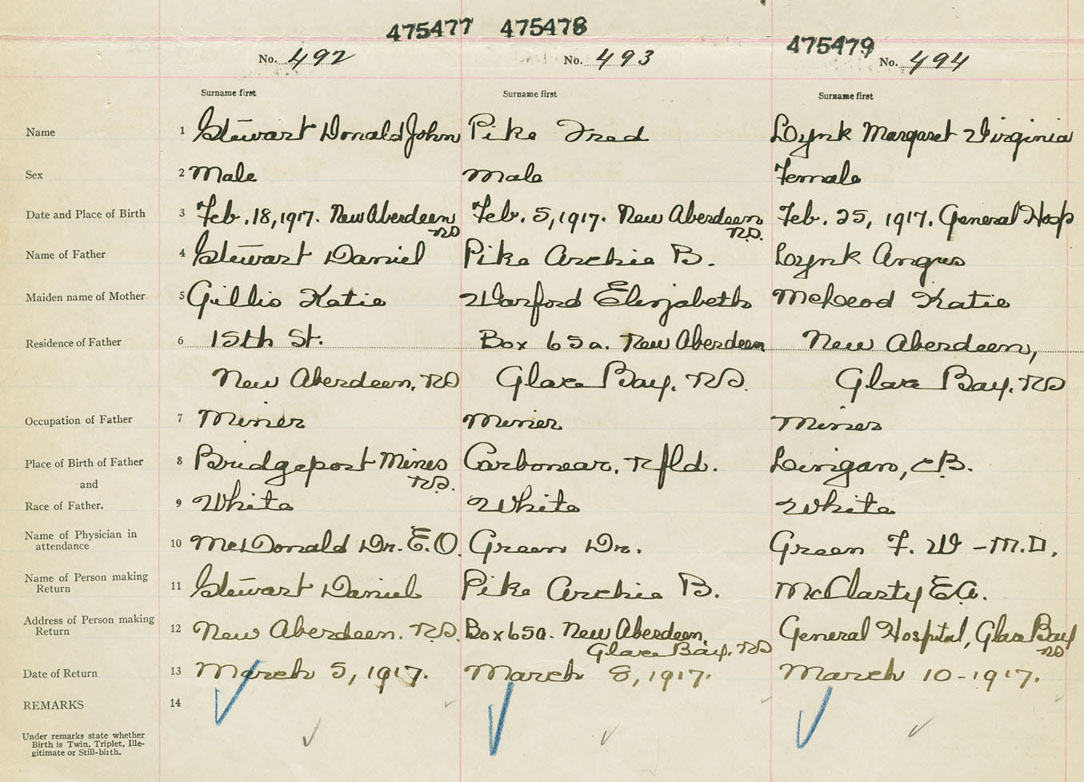 475477 475478 475479
No. 492 No. 493 No. 494
Surname first Surname first Surname first
Name 1 Stewart Donald John Pike Fred Loynk Margaret Virginia
Sex 2 Male Male Female
Date and Place of Birth 3 Feb. 18, 1917. New Aberdeen Feb. 5, 1917. New Aberdeen Feb. 25, 1917. General Hosp
N.S. N.S.
Name of Father 4 Stewart Daniel Pike Archie B. Loynk Angus
Maiden name of Mother 5 Gillis Katie Warford Elizabeth McLeod Katie
Residence of Father 6 15th St. Box 65a. New Aberdeen New Aberdeen,
New Aberdeen, N.S Glace Bay, N.S. Glace Bay, N.S
Occupation of Father 7 Miner Miner Miner
Place of Birth of Father 8 Bridgeport Mines Carbonear, Nfld. Lingan, C.B.
and N.S.
Race of Father. 9 White White White
Name of Physician in
attendance 10 McDonald Dr. E.O. Green Dr. Green F. W - M.D.
Name of Person making
Return 11 Stewart Daniel Pike Archie B. McClasty E.A.
Address of Person making
Return 12 New Aberdeen. N.S. Box 65a. New Aberdeen, General Hospital, Glace Bay
Glace Bay, N.S N.S
Date of Return 13 March 5, 1917. March 8, 1917. March 10-1917.
REMARKS 14
Under remarks state whether
Birth is Twin, Triplet, Ille-
gitimate or Still-birth.